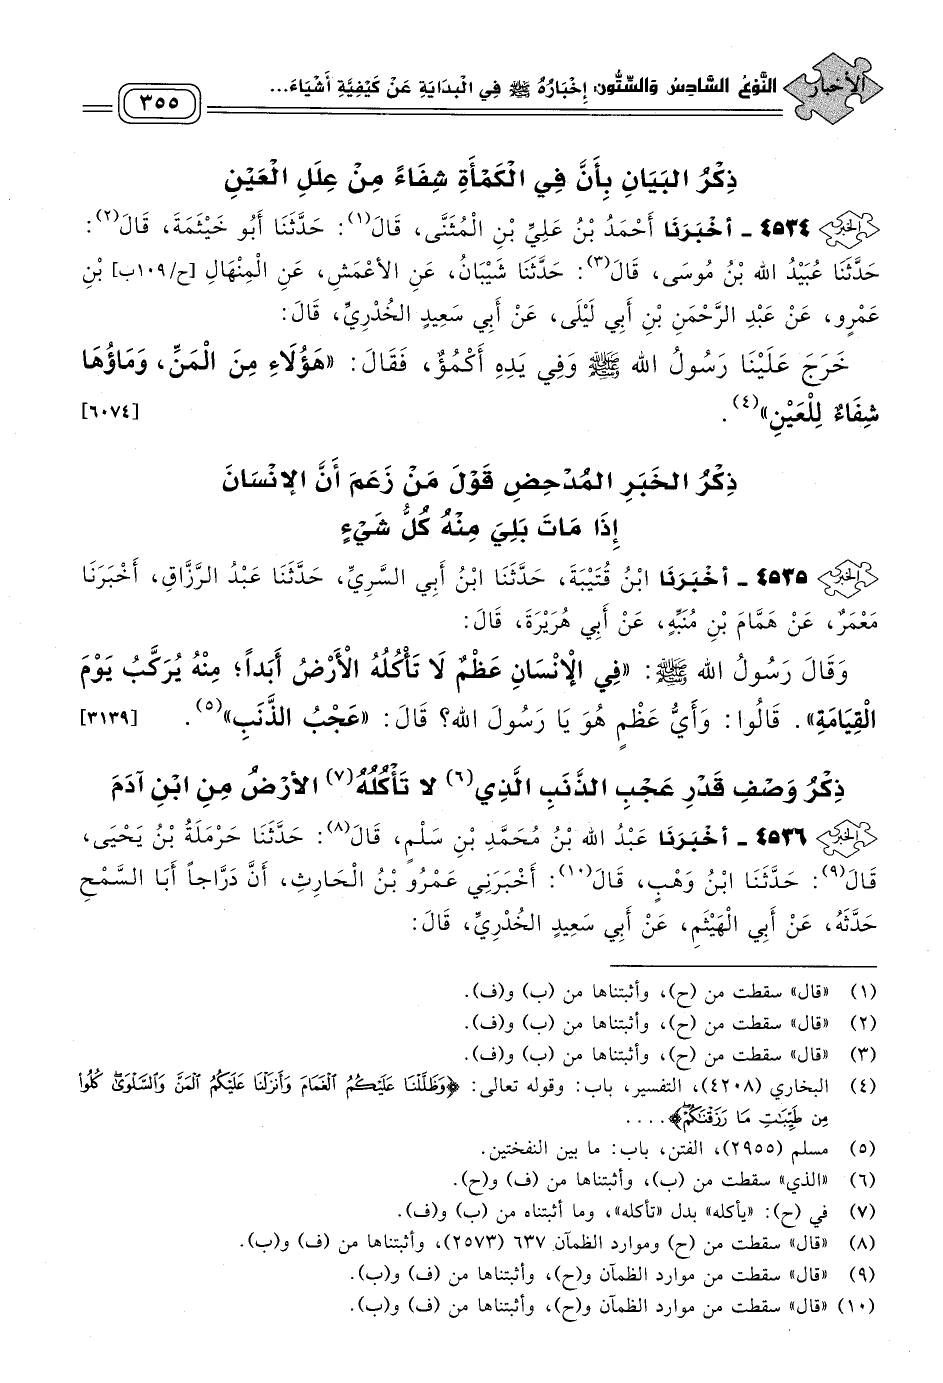 الأخبار
النَّوْعُ السَّادِسُ وَالسِّتُّونَ: إِخْبَارُهُ ﷺ فِي الْبِدَايَةِ عَنْ كَيْفِيَّةِ أَشْيَاءَ...
٣٥٥
ذِكْرُ البَيَانِ بِأَنَّ فِي الْكَمْأَةِ شِفَاءً مِنْ عِلَلِ الْعَيْنِ
٤٥٣٤ ـ أَخْبَرَنَا أَحْمَدُ بْنُ عَلِيِّ بْنِ الْمُثَنَّى، قَالَ(١): حَدَّثَنَا أَبُو خَيْثَمَةَ، قَالَ(٢):
حَدَّثَنَا عُبَيْدُ الله بْنُ مُوسَى، قَالَ(٣): حَدَّثَنَا شَيْبَانُ، عَنِ الأَعْمَشِ، عَنِ الْمِنْهَالِ [ح/١٠٩ب] بْنِ
عَمْرٍو، عَنْ عَبْدِ الرَّحْمَنِ بْنِ أَبِي لَيْلَى، عَنْ أَبِي سَعِيدٍ الخُدْرِيِّ، قَالَ:
خَرَجَ عَلَيْنَا رَسُولُ الله ﷺ وَفِي يَدِهِ أَكْمُؤٌ، فَقَالَ: «هَؤُلَاءِ مِنَ الْمَنِّ، وَمَاؤُهَا
شِفَاءٌ لِلْعَيْنِ»(٤). [٦٠٧٤]
ذِكْرُ الخَبَرِ المُدْحِضِ قَوْلَ مَنْ زَعَمَ أَنَّ الإنْسَانَ
إِذَا مَاتَ بَلِيَ مِنْهُ كُلُّ شَيْءٍ
٤٥٣٥ ـ أَخْبَرَنَا ابْنُ قُتَيْبَةَ، حَدَّثَنَا ابْنُ أَبِي السَّرِيِّ، حَدَّثَنَا عَبْدُ الرَّزَّاقِ، أَخْبَرَنَا
مَعْمَرٌ، عَنْ هَمَّامِ بْنِ مُنَبِّهٍ، عَنْ أَبِي هُرَيْرَةَ، قَالَ:
وَقَالَ رَسُولُ الله ﷺ: «فِي الْإِنْسَانِ عَظْمٌ لَا تَأْكُلُهُ الْأَرْضُ أَبَداً؛ مِنْهُ يُرَكَّبُ يَوْمَ
الْقِيَامَةِ». قَالُوا: وَأَيُّ عَظْمٍ هُوَ يَا رَسُولَ الله؟ قَالَ: «عَجْبُ الذَّنَبِ»(٥). [٣١٣٩]
ذِكْرُ وَصْفِ قَدْرِ عَجْبِ الذَّنَبِ الَّذِي(٦) لا تَأْكُلُهُ(٧) الأَرْضُ مِنِ ابْنِ آدَمَ
٤٥٣٦ ـ أَخْبَرَنَا عَبْدُ الله بْنُ مُحَمَّدِ بْنِ سَلْمٍ، قَالَ(٨): حَدَّثَنَا حَرْمَلَةُ بْنُ يَحْيَى،
قَالَ(٩): حَدَّثَنَا ابْنُ وَهْبٍ، قَالَ(١٠): أَخْبَرَنِي عَمْرُو بْنُ الْحَارِثِ، أَنَّ دَرَّاجاً أَبَا السَّمْحِ
حَدَّثَهُ، عَنْ أَبِي الْهَيْثَمِ، عَنْ أَبِي سَعِيدٍ الخُدْرِيِّ، قَالَ:
(١) «قال» سقطت من (ح)، وأثبتناها من (ب) و(ف).
(٢) «قال» سقطت من (ح)، وأثبتناها من (ب) و(ف).
(٣) «قال» سقطت من (ح)، وأثبتناها من (ب) و(ف).
(٤) البخاري (٤٢٠٨)، التفسير، باب: وقوله تعالى: ﴿وَظَلَّلْنَا عَلَيْكُمُ الْغَمَامَ وَأَنزَلْنَا عَلَيْكُمُ الْمَنَّ وَالسَّلْوَىٰ كُلُوا
مِن طَيِّبَاتِ مَا رَزَقْنَاكُمْ﴾....
(٥) مسلم (٢٩٥٥)، الفتن، باب: ما بين النفختين.
(٦) «الذي» سقطت من (ب)، وأثبتناها من (ف) و(ح).
(٧) في (ح): «يأكله» بدل «تأكله»، وما أثبتناه من (ب) و(ف).
(٨) «قال» سقطت من (ح) وموارد الظمآن ٦٣٧ (٢٥٧٣)، وأثبتناها من (ف) و(ب).
(٩) «قال» سقطت من موارد الظمآن و(ح)، وأثبتناها من (ف) و(ب).
(١٠) «قال» سقطت من موارد الظمآن و(ح)، وأثبتناها من (ف) و(ب).